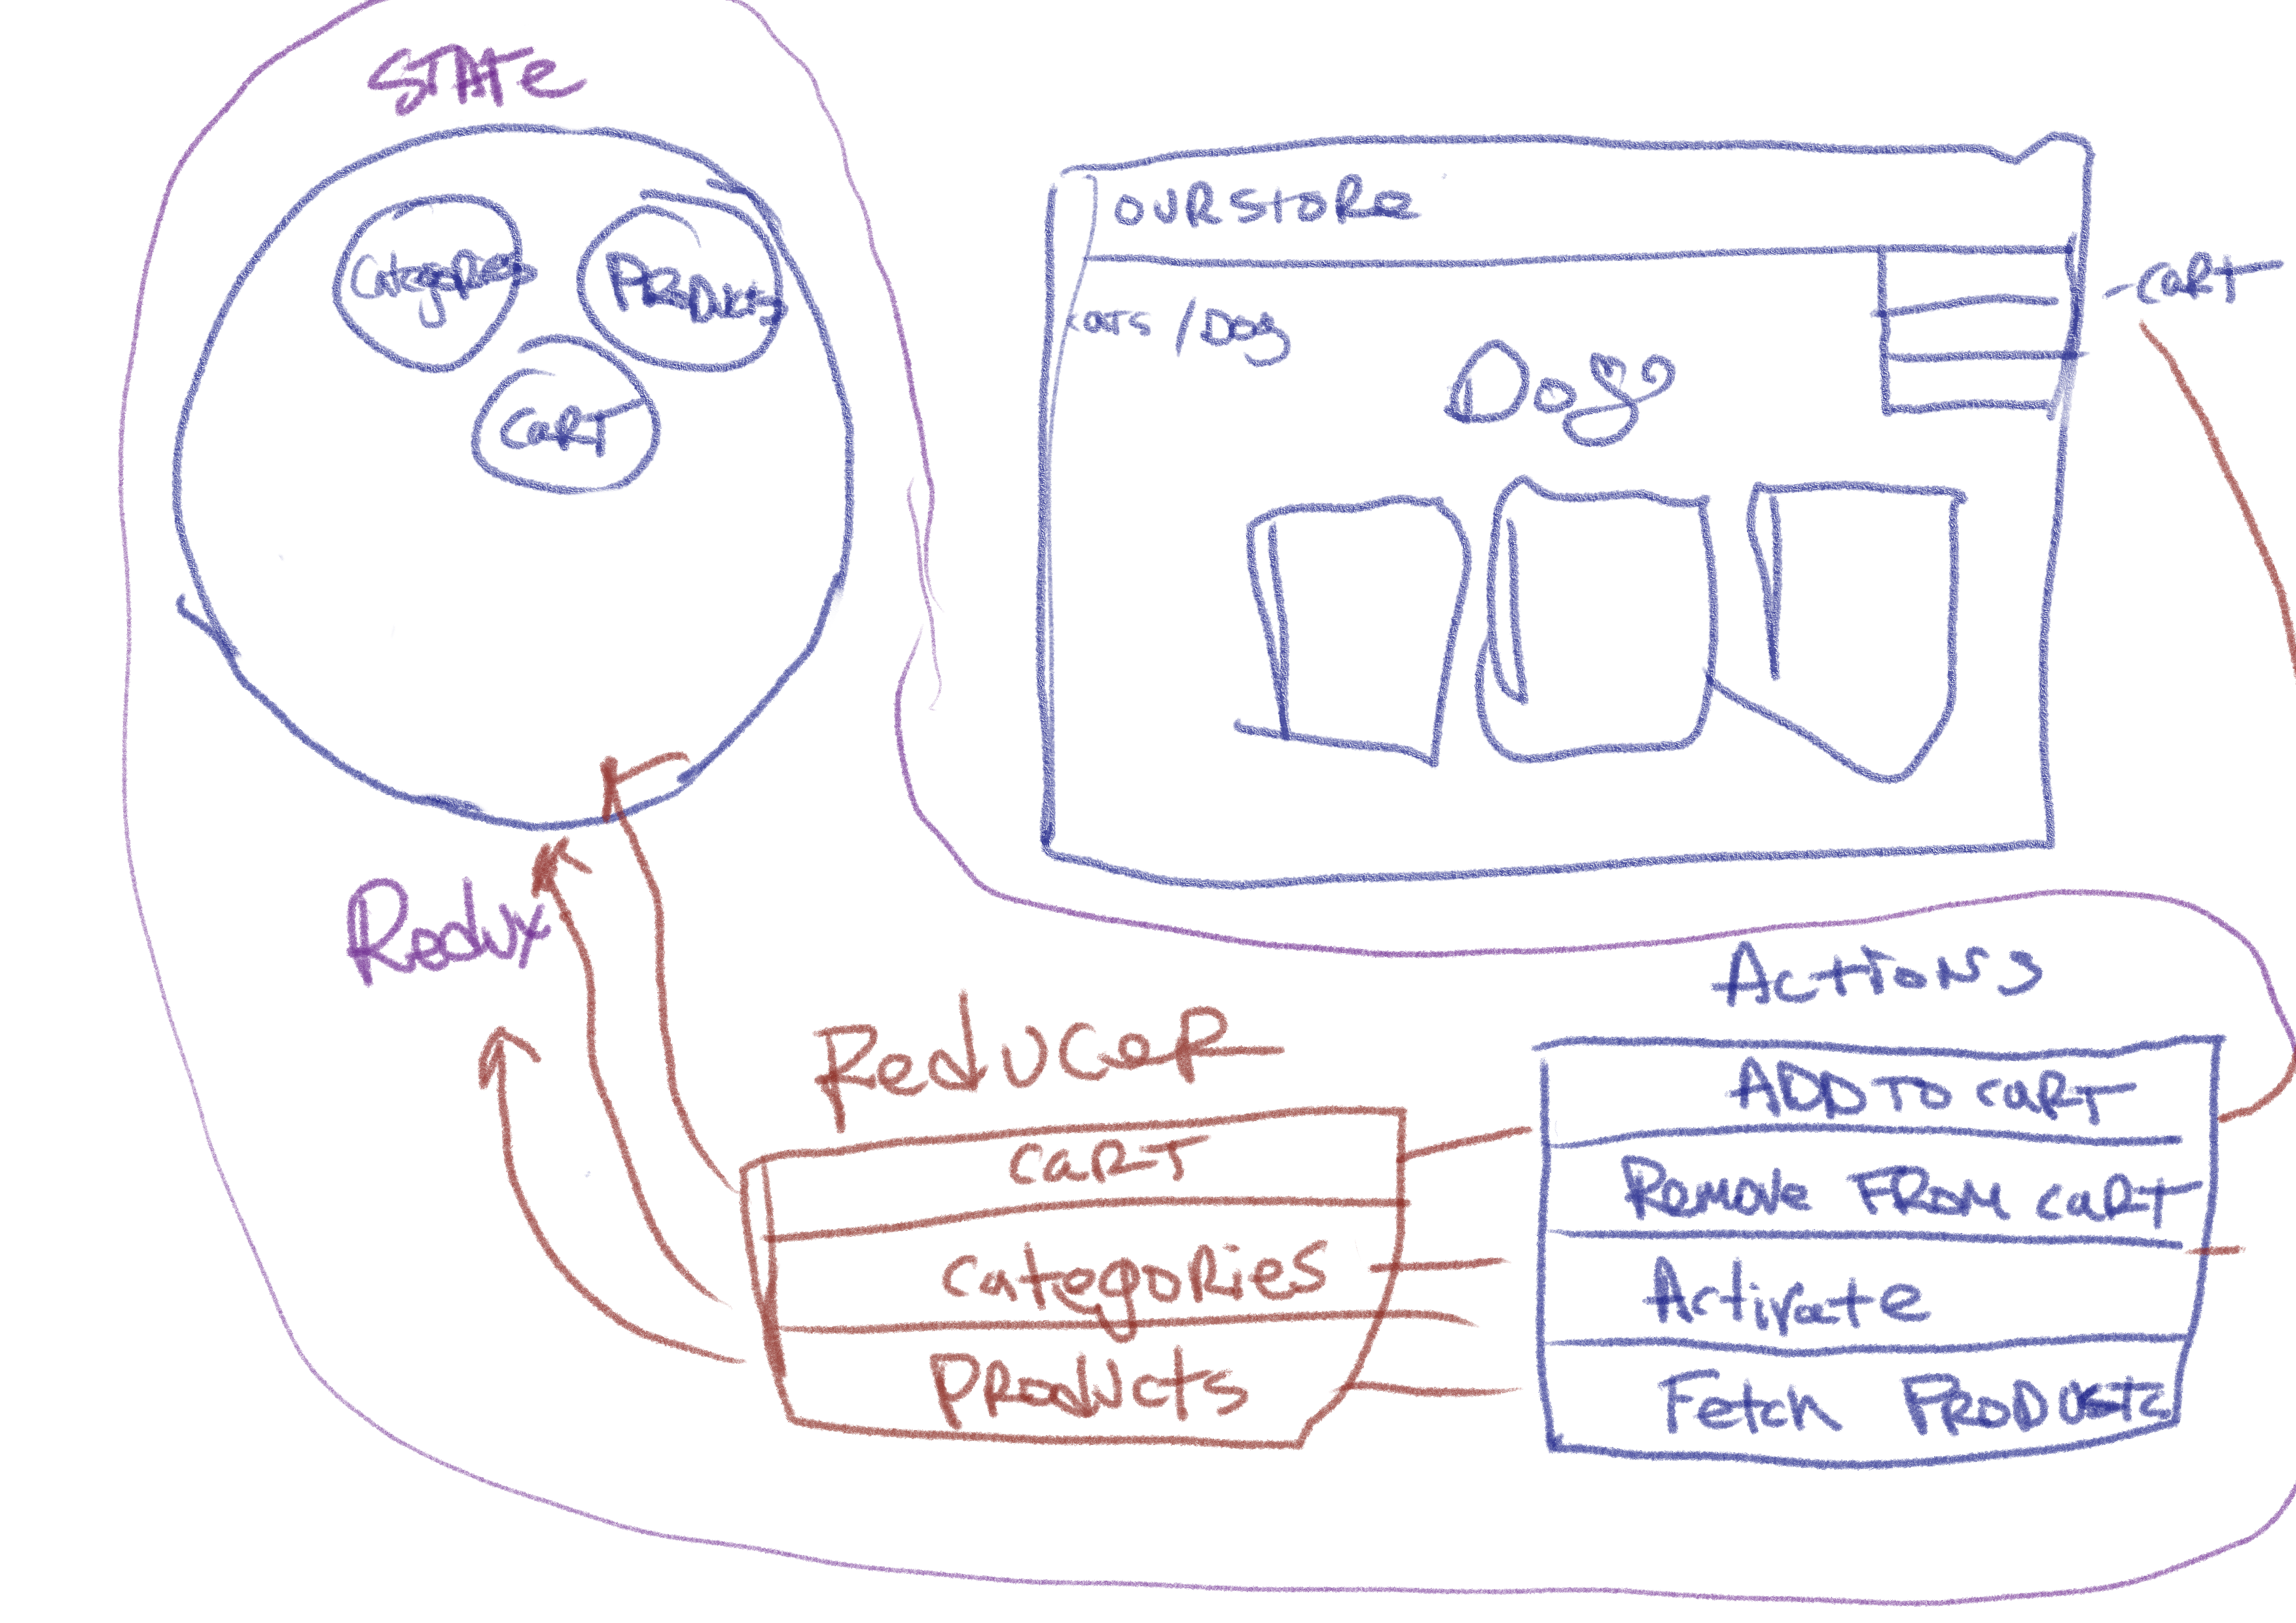 STATE
Categories
PRODUCTS
CART
OUR STORE
CATS / DOG
Dogs
- CART
Redux
Reducer
CART
Categories
Products
Actions
ADD TO CART
Remove FROM CART
Activate
Fetch PRODUCTS